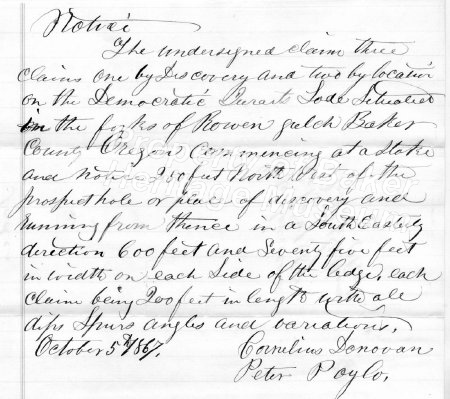 Notice
The undersigned claim three
claims one by Discovery and two by location
on the Democratic Lode Situated
in the forks of Rowen gulch Baker
County Oregon Commencing at a Stake
and notice feet North West of the
prospect hole or place of discovery and
running from thence in a South Easterly
direction 600 feet and Seventy five feet
in width on each Side of the ledge, each
claim being 200 feet in length with all
dips Spurs angles and variations.
October 5th 1867. Cornelius Donovan
Peter